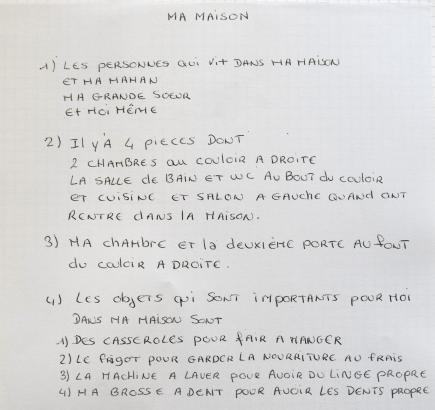 MA MAISON
1) LES PERSONNES QUI VIT DANS MA MAISON
ET MA MAMAN
MA GRANDE SOEUR
ET MOI MÊME
2) Il y'A 4 PIECES DONT
2 CHAMBRES au couloir A DROITE
LA SALLE de BAIN ET WC AU BOUT du couloir
ET CUISINE ET SALON A GAUCHE QUAND ONT
RENTRE dANS LA MAISON.
3) MA chAMbRE ET la dEUXIÈME PORTE AU FONT
du couloir A DROITE.
4) LES objETS qui SONT IMPORTANTS POUR MOI
DANS MA MAISON SONT
1) DES CASSEROLES POUR FAIR A MANGER
2) LE FRIGOT POUR GARDER LA NOURRITURE AU FRAIS
3) LA MACHINE A LAVER POUR AVOIR DU LINGE PROPRE
4) MA BROSSE A DENT POUR AVOIR LES DENTS PROPRE